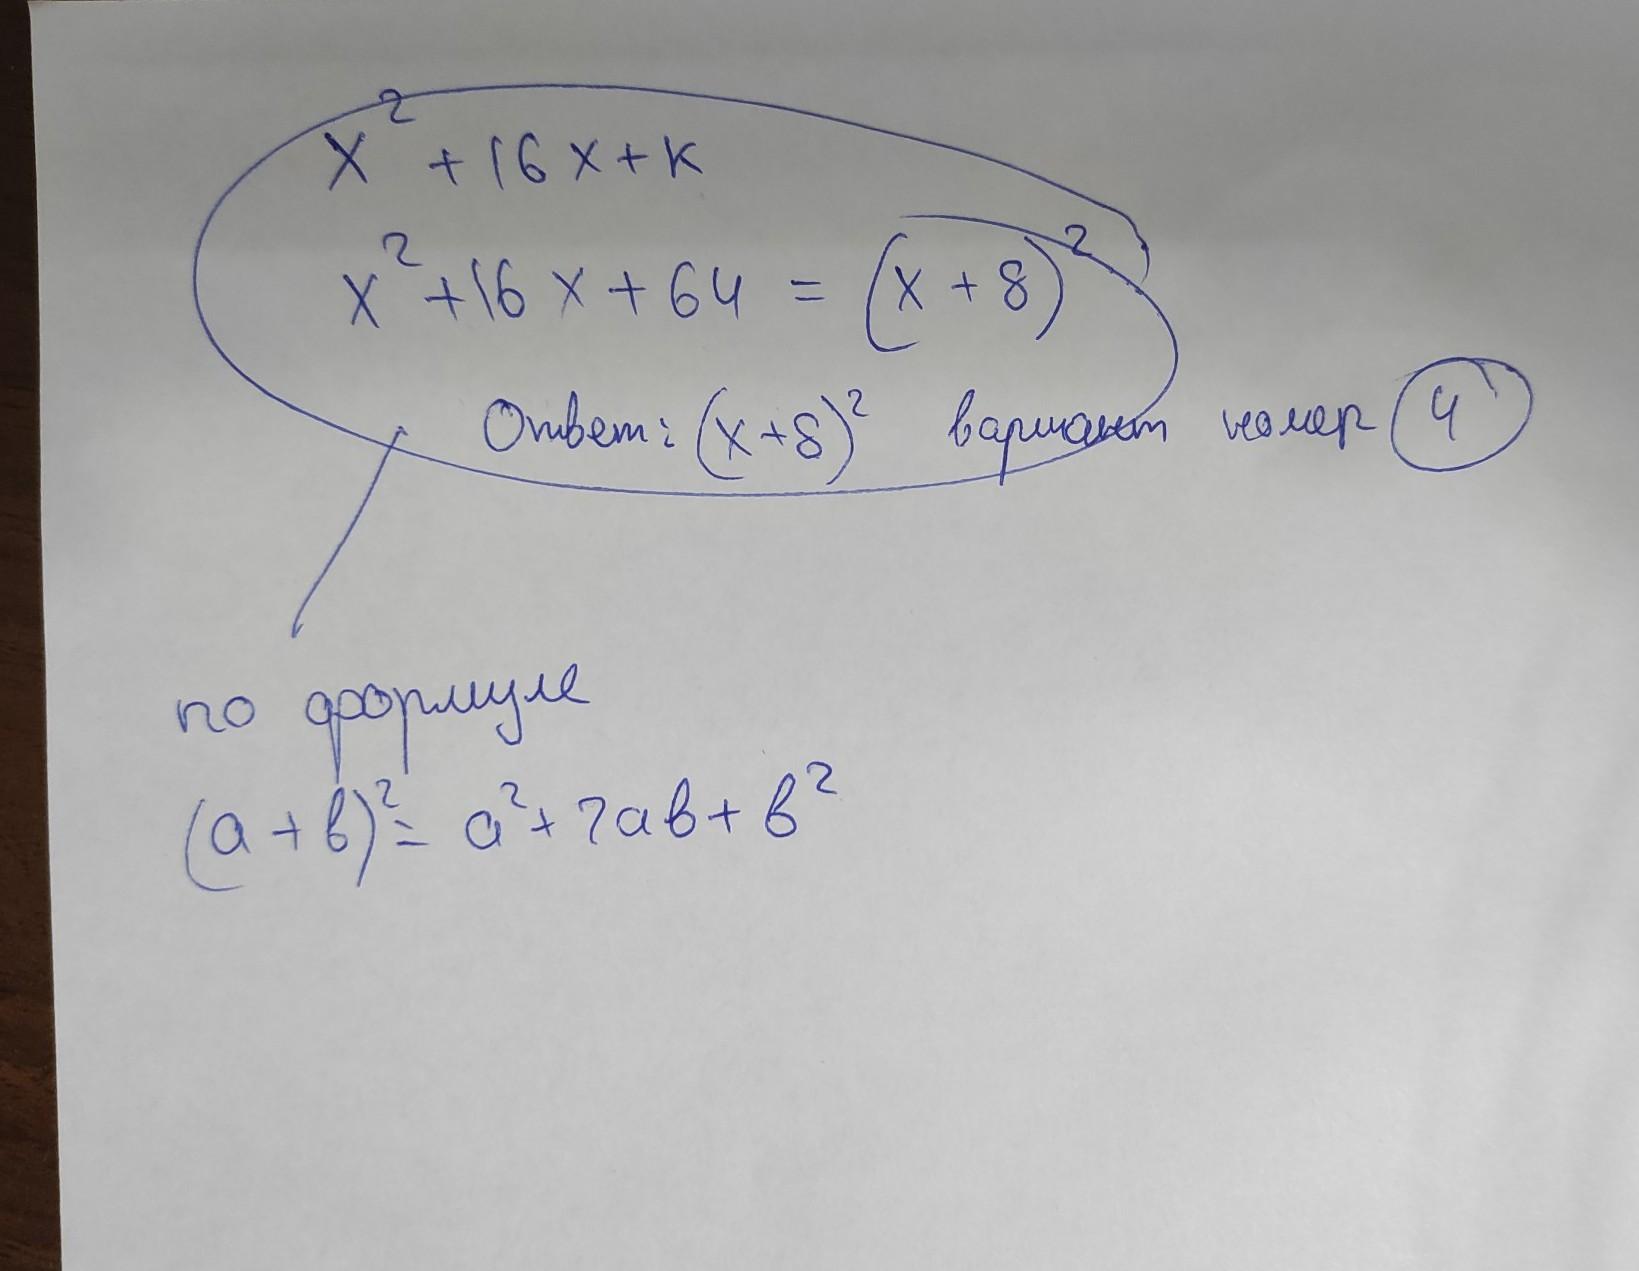 x² + 16x + к
x² + 16x + 64 = (x + 8)²
Ответ: (x+8)² вариант номер 4
по формуле
(а + в)² = а² + 2ав + в²